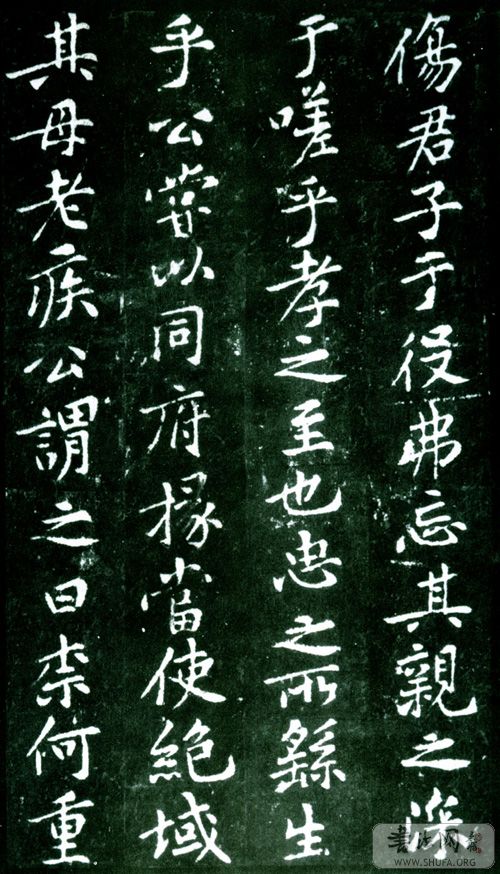 傷君子于役弗忘其親之
于嗟乎孝之至也忠之所繇生
乎公嘗以同府掾當使絕域
其母老疾公謂之曰柰何重
书法网
WWW.SHUFA.ORG